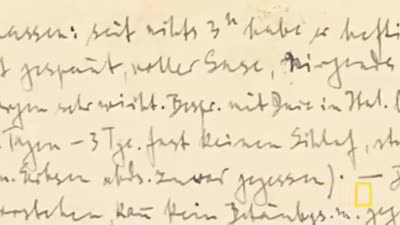 lassen: seit nchts 3ʰ habe er hefti
t gespannt, voller Gase, nirgends
rgen sehr wicht. Bespr. mit Duce in Ital. (
Tagen – 3 Tge. fast keinen Schlaf, st
n. Erbsen abds. zuvor gegessen). – D
verstehen, kann kein Betäubgs.m. geg